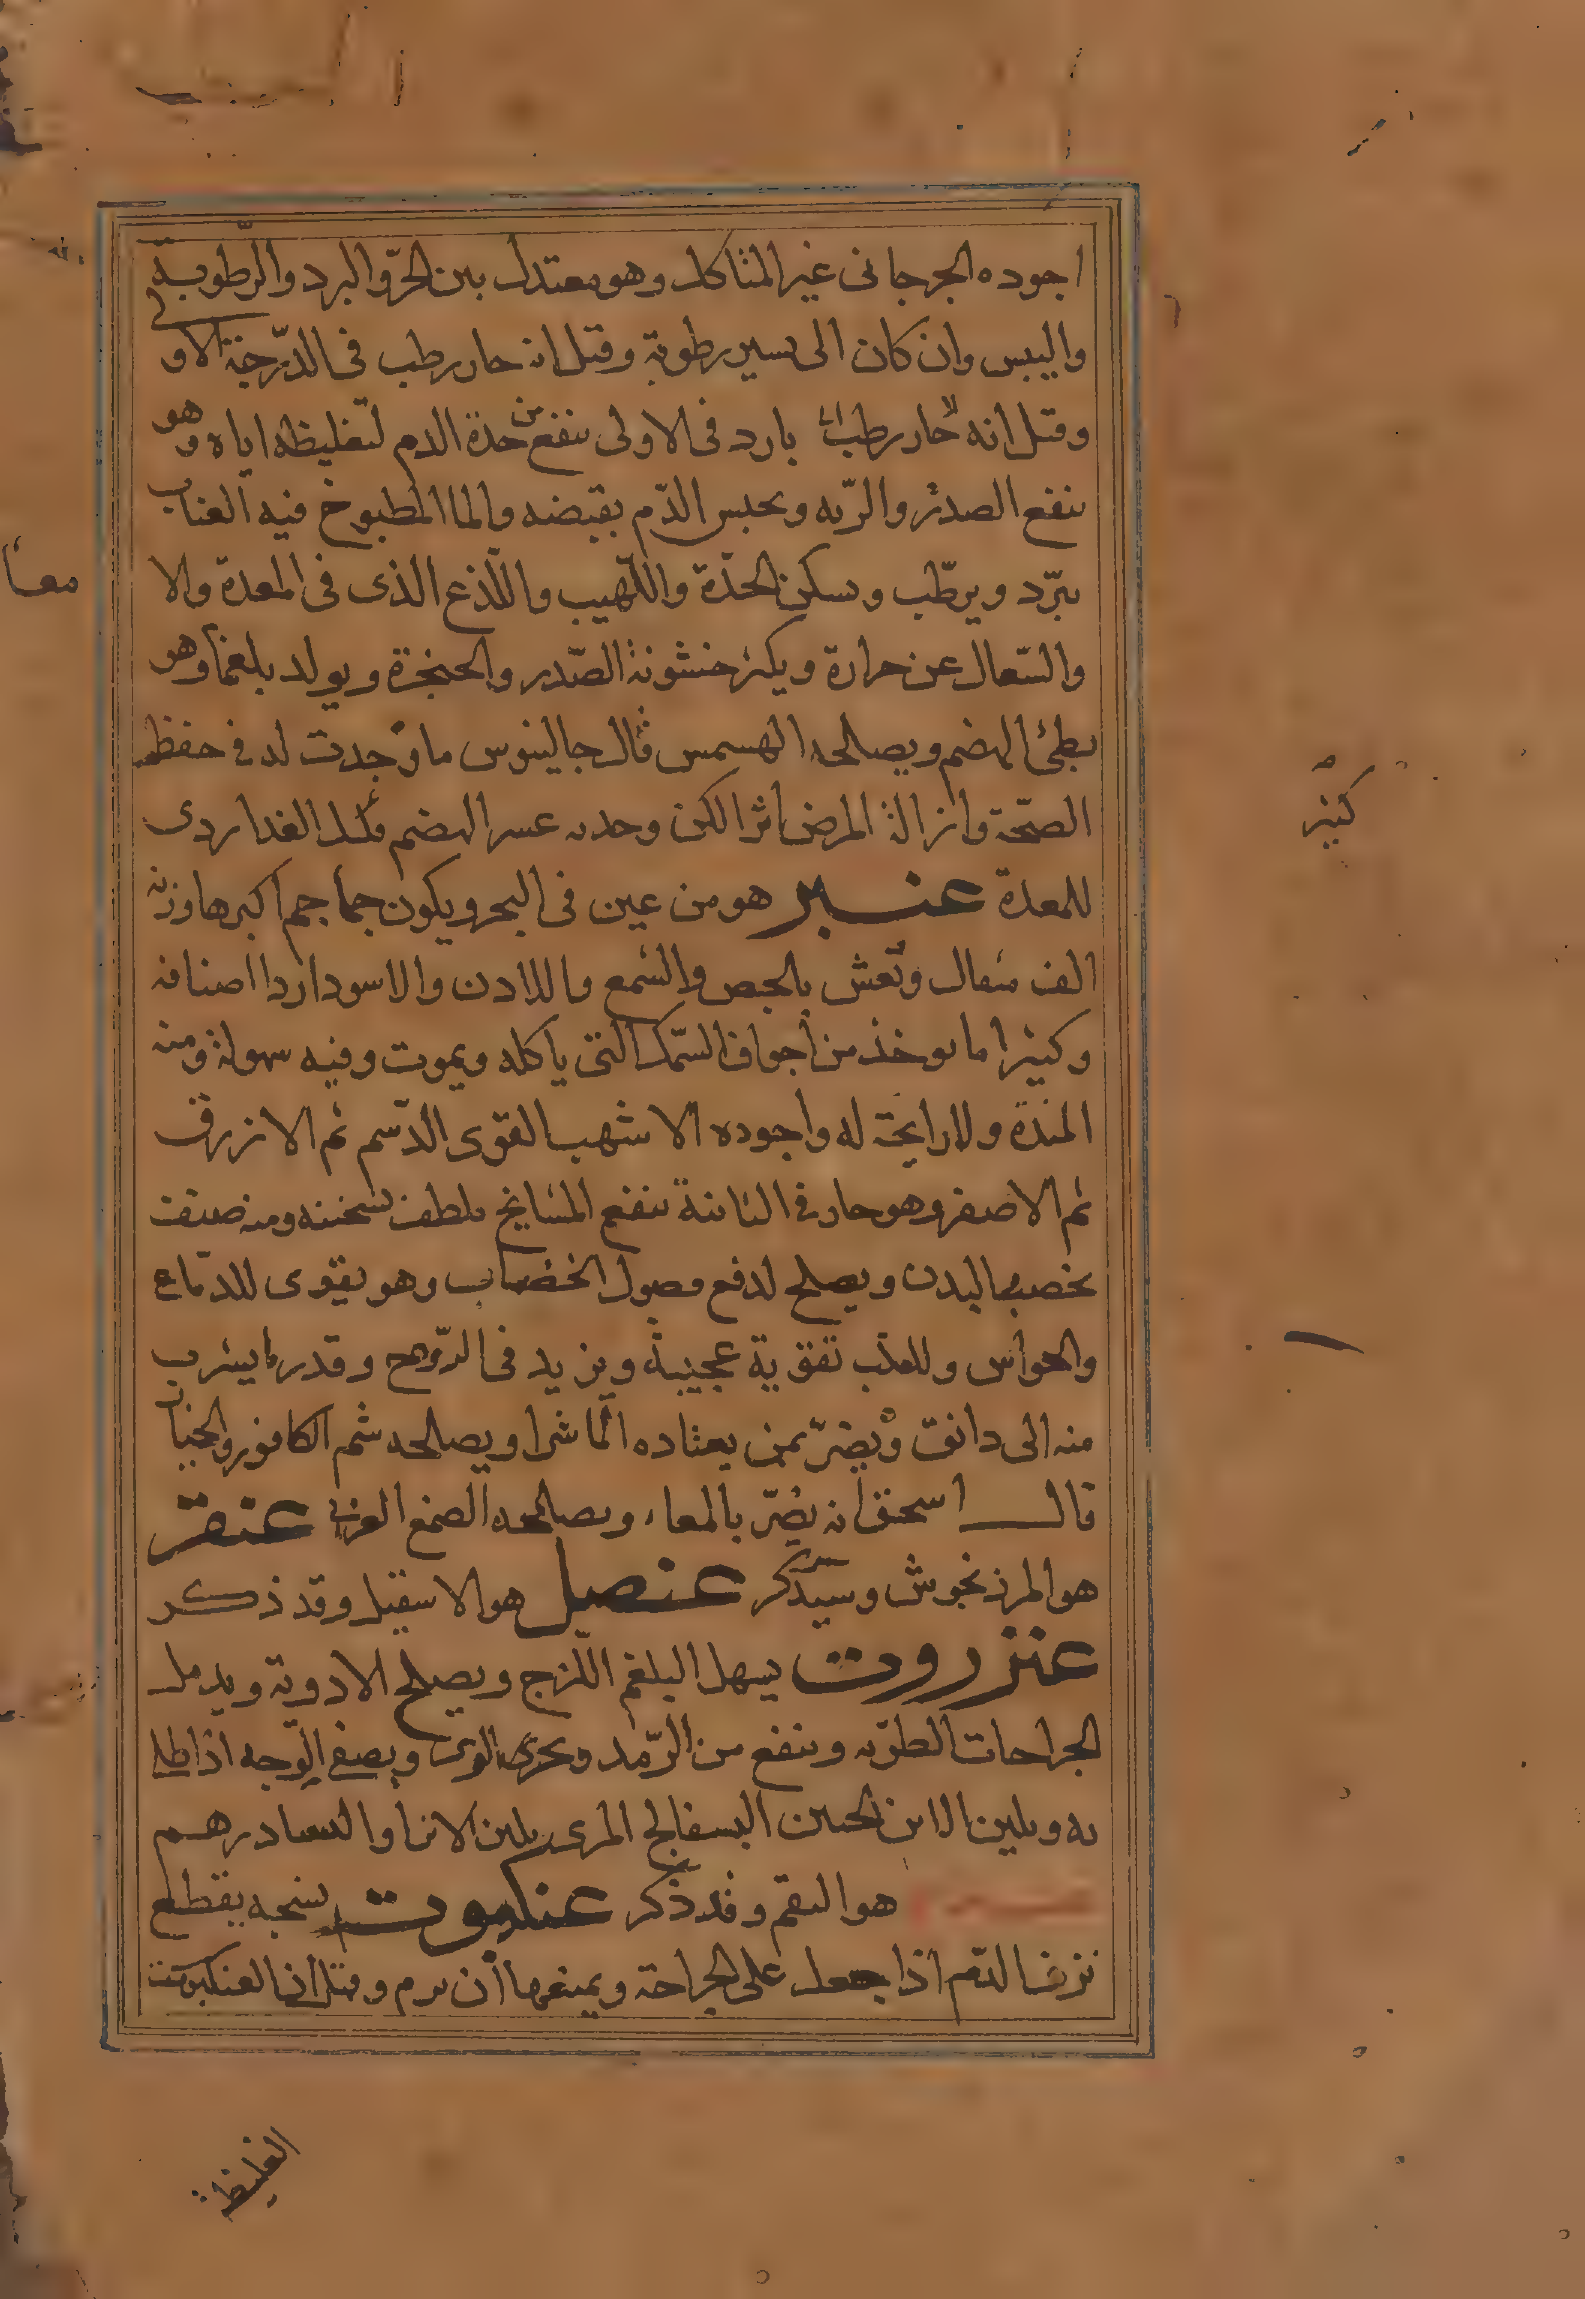 اجوده الجرجانى غير المتاكل وهو معتدل بين الحرّ والبرد والرّطوبة
واليبس وان كان الى يسير رطوبة وقيل انه حار رطب فى الدّرجة الاو
وقيل انه حار رطب بارد فى الاولى ينفع من حدة الدم لتغليظه اياه وهو
ينفع الصدر والرّيه ويحبس الدّم بقبضه والما المطبوخ فيه العناب
يبرّد ويرطّب ويسكن الحدّة واللّهيب واللّذع الذى فى المعدة والا
معا
والسّعال عن حرارة ويكسر خشونة الصّدر والحنجرة ويولد بلغما وهو
بطئ الهضم ويصلحه قال جالينوس ما وجدت له فى حفظ
الصّحة وازالة المرض اثرا لكن وجدته عسر الهضم قليل الغدا ردى
كثير
للمعدة عنبر هو من عين فى البحر ويكون جماجم اكبرها وزنه
الف مثقال وتغش بالجص والشمع واللادن والاسود اردا اصنافه
وكثيرا ما يوخذ من اجواف السّمك التى ياكله ويموت وفيه سهولة ومنه
ولا رايحة له واجوده الاشهب القوى الدّسم ثم الازرق
ثم الاصفر وهو حار فى الثانية ينفع المشايخ بلطف تسخينه ومنه صنف
يخصب البدن ويصلح لدفع الخضاب وهو يقوى للدماغ
والحواس وللقلب تقوية عجيبة ويزيد فى الرّوح وقدر ما يشرب
منه الى دانق ويضرّ بمن يعتاده الماشرا ويصلحه شم الكافور والخيار
قال اسحق انه يضرّ بالمعاء ويصلحه الصمغ العربى عنقر
هو المرزنجوش وسيذكر عنصل هو الاسقيل وقد ذكر
عنزروت يسهل البلغم اللّزج ويصلح الادوية ويدمل
الجراحات الطريّه وينفع من الرّمد ويصفى الوجه اذا طلا
به ويلين
هو البقم وقد ذكر عنكبوت نسجه يقطع
نزف الدّم اذا جعل على الجراحة ويمنعها ان يرم وقيل ان العنكبوت
الغليظ